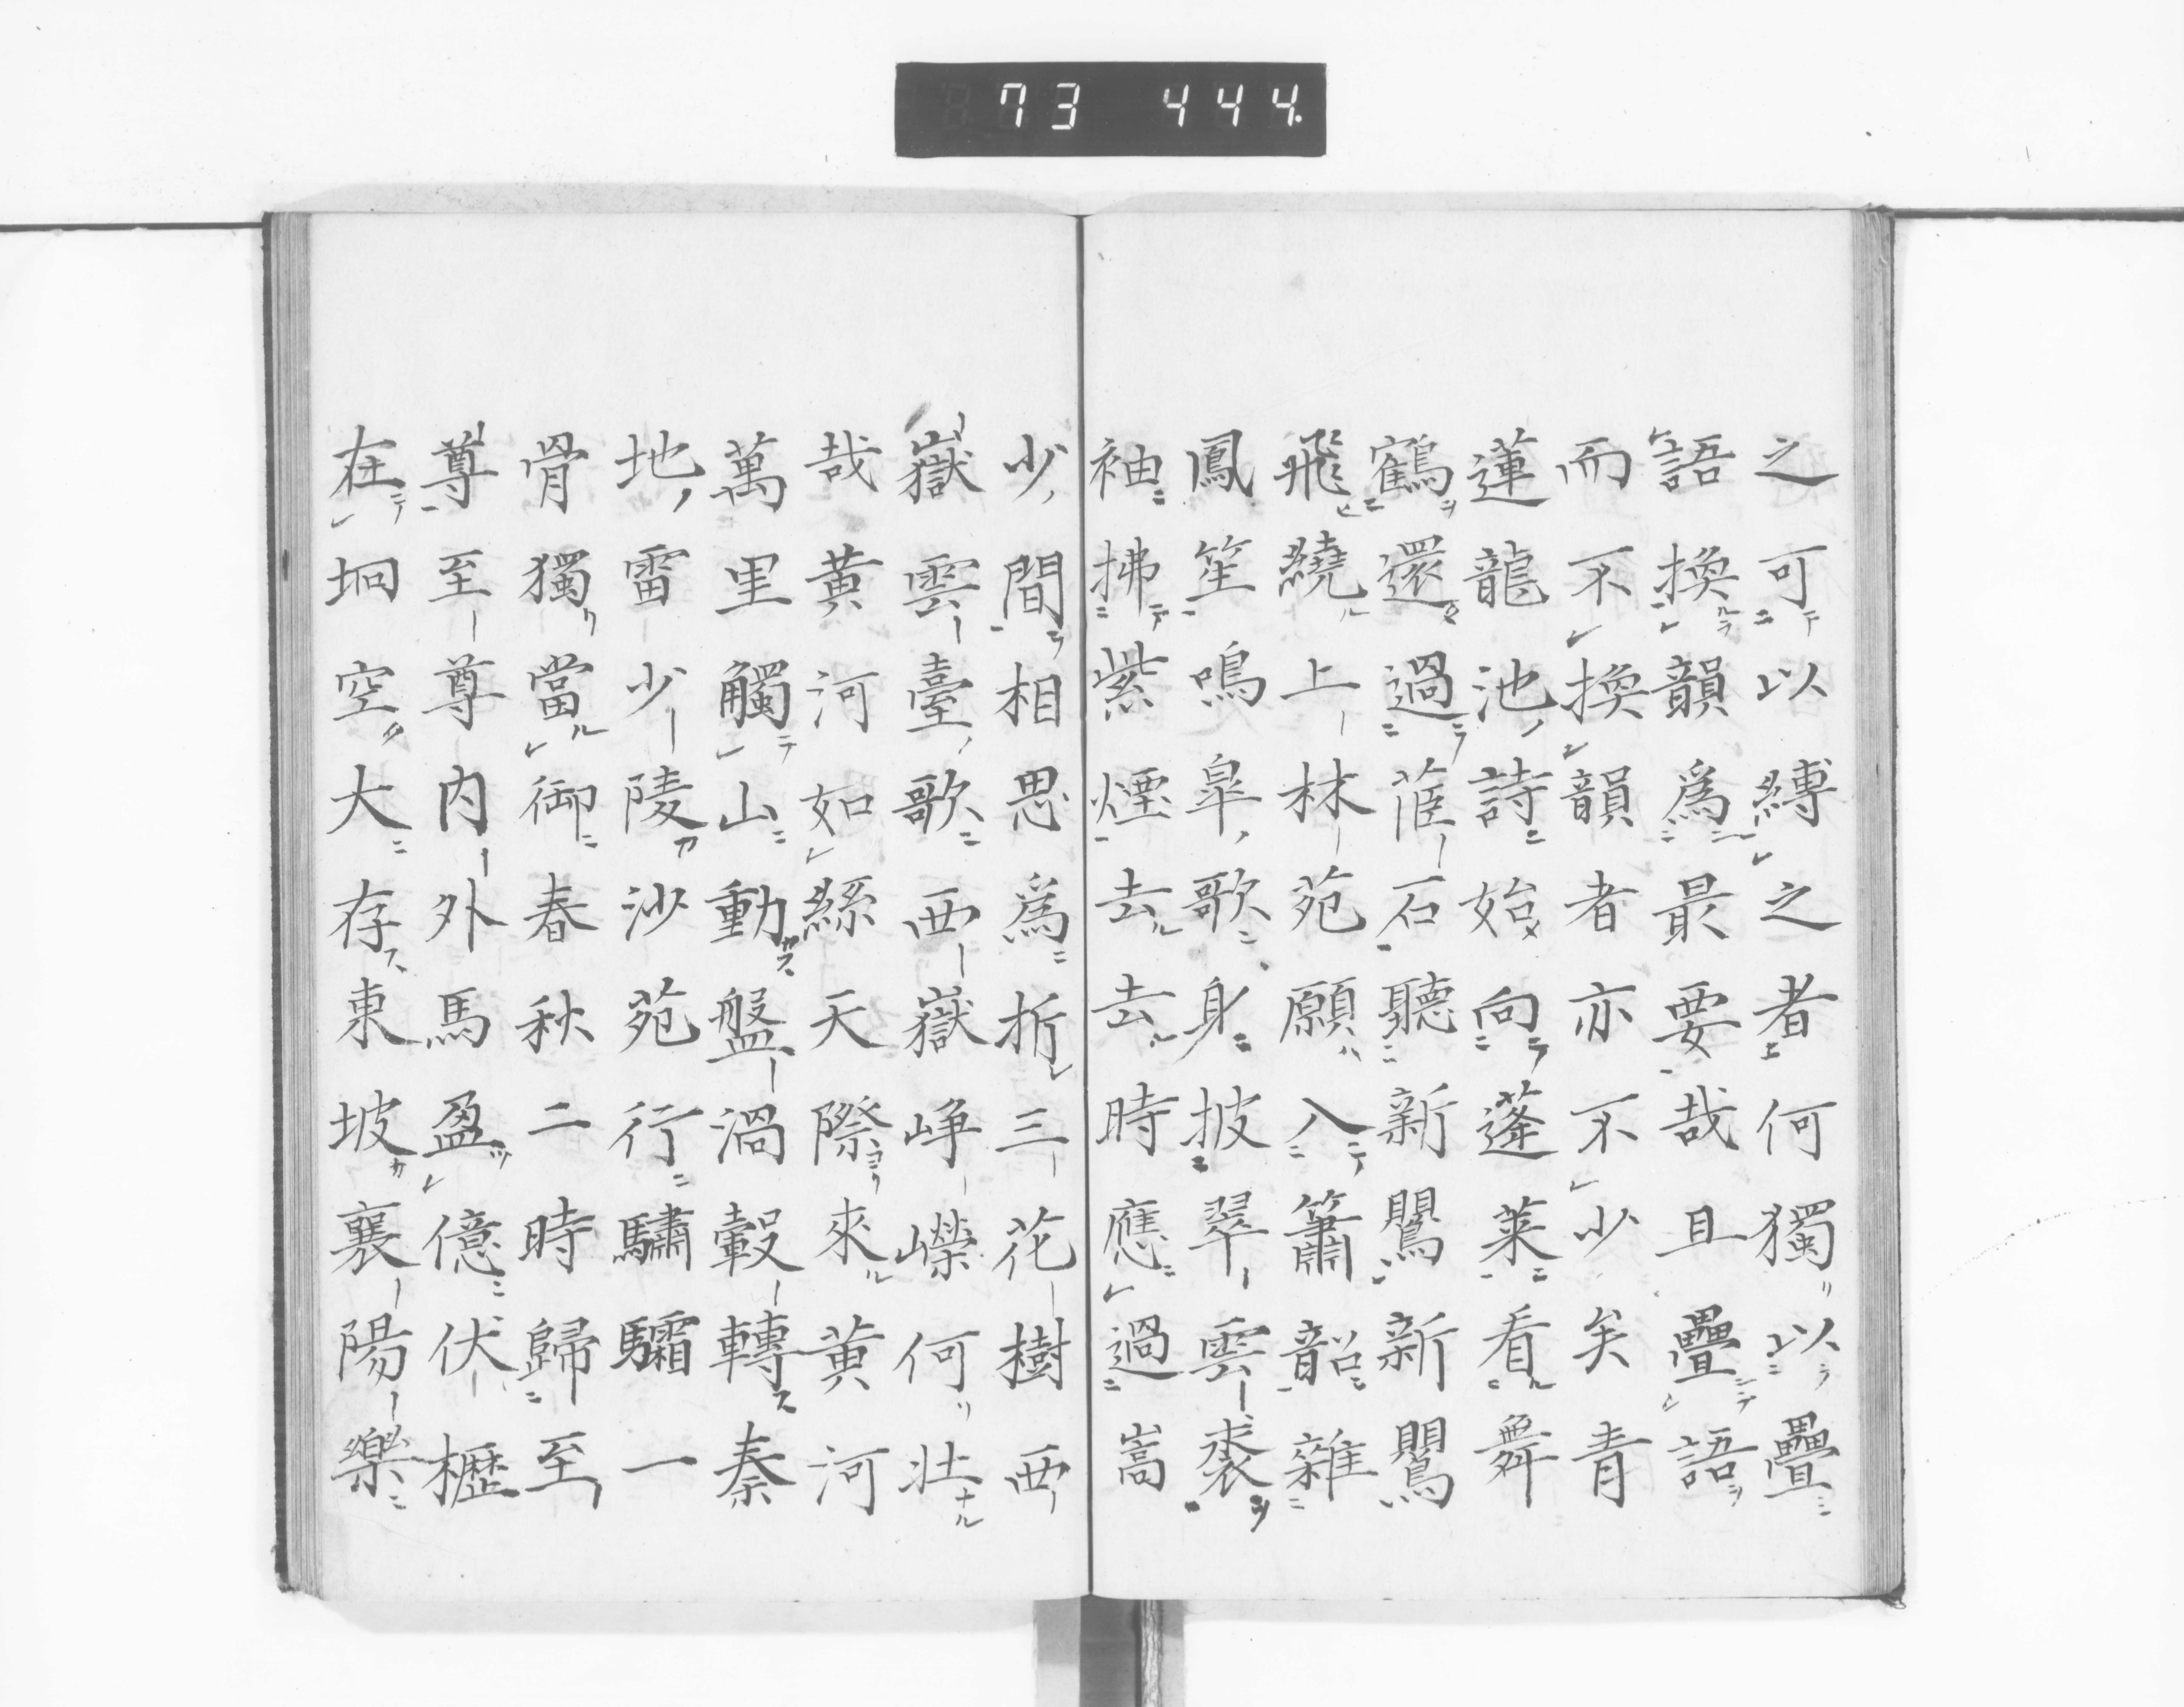 73 444.
之可以縛之者何獨以疊
語換韻爲最要哉且疊語
而不換韻者亦不少矣青
蓮龍池詩始向蓬萊看舞
鶴還過茝石聽新鸎新鸎
飛繞上林苑願入簫韶雜
鳳笙鳴皐歌身披翠雲裘
袖拂紫煙去去時應過嵩
少間相思爲折三花樹西
嶽雲臺歌西嶽崢嶸何壯
哉黃河如絲天際來黃河
萬里觸山動盤渦轂轉秦
地雷少陵沙苑行驌驦一
骨獨當御春秋二時歸至
尊至尊內外馬盈億伏櫪
在坰空大存東坡襄陽樂